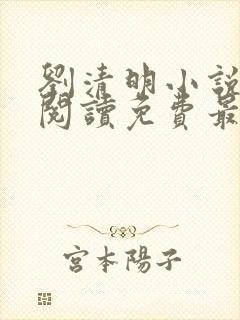 劉清明小說
閱讀免費最
宮本陽子